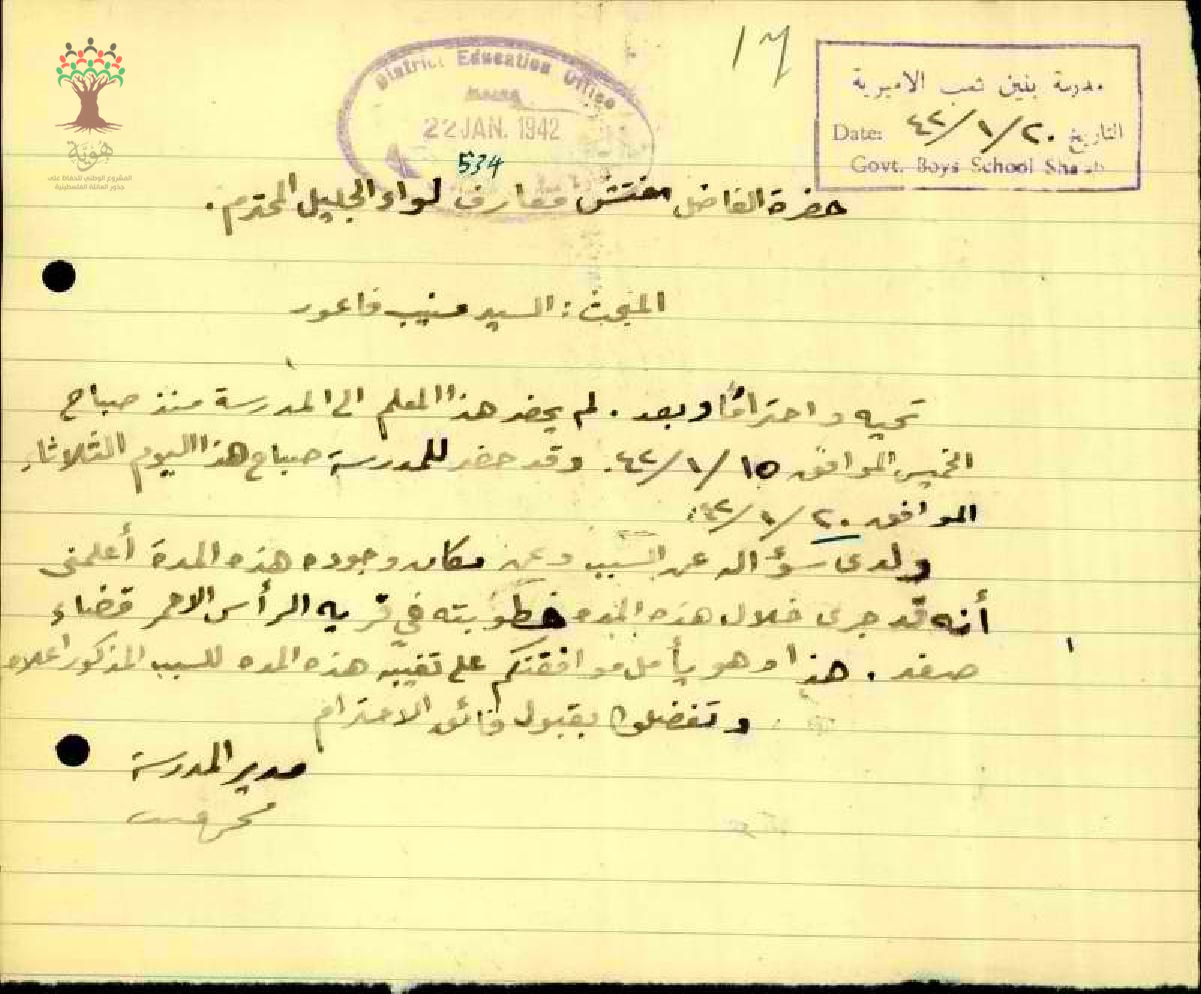 17
District Education Office
22 JAN. 1942
534
مدرسة بنين شعب الاميرية
التاريخ ٢٠/١/٤٢ Date:
Govt. Boys School Shaab
هويّة
المشروع الوطني للحفاظ على
جذور العائلة الفلسطينية
حضرة الفاضل مفتش معارف لواء الجليل المحترم.
المبحث: السيد منيب فاعور
تحيه و احتراماً وبعد. لم يحضر هذا المعلم الى المدرسة منذ صباح
الخميس الموافق ١٥/١/٤٢. وقد حضر للمدرسة صباح هذا اليوم الثلاثاء
الموافق ٢٠/١/٤٢.
ولدى سؤاله عن السبب وعن مكان وجوده هذه المدة أعلمني
أنه قد جرى خلال هذه المده خطوبته في قريه الرأس الاحمر قضاء
صفد. هذا وهو يأمل موافقتكم على تغيّبه هذه المده للسبب المذكور اعلاه
وتفضلوا بقبول فائق الاحترام
مدير المدرسة